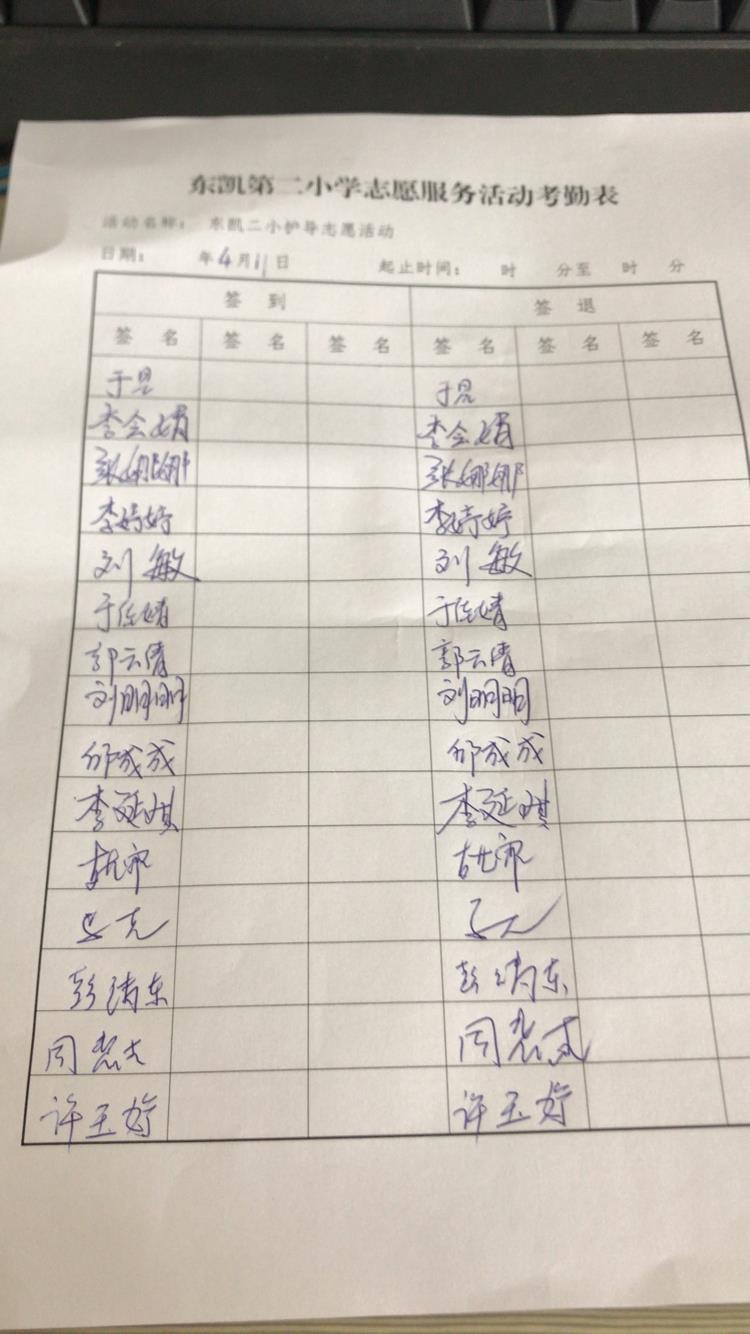 东凯第二小学志愿服务活动考勤表
活动名称： 东凯二小护导志愿活动
日期： 年4月11日 起止时间： 时 分至 时 分
签 到 签 退
签 名 签 名 签 名 签 名 签 名 签 名
于 于
李会娟 李会娟
张娜娜 张娜娜
李婷婷 李婷婷
刘敏 刘敏
于佐婧 于佐婧
郭云倩 郭云倩
刘明明 刘明明
邰成成 邰成成
李延琪 李延琪
彭清东 彭清东
周 周
许玉婷 许玉婷